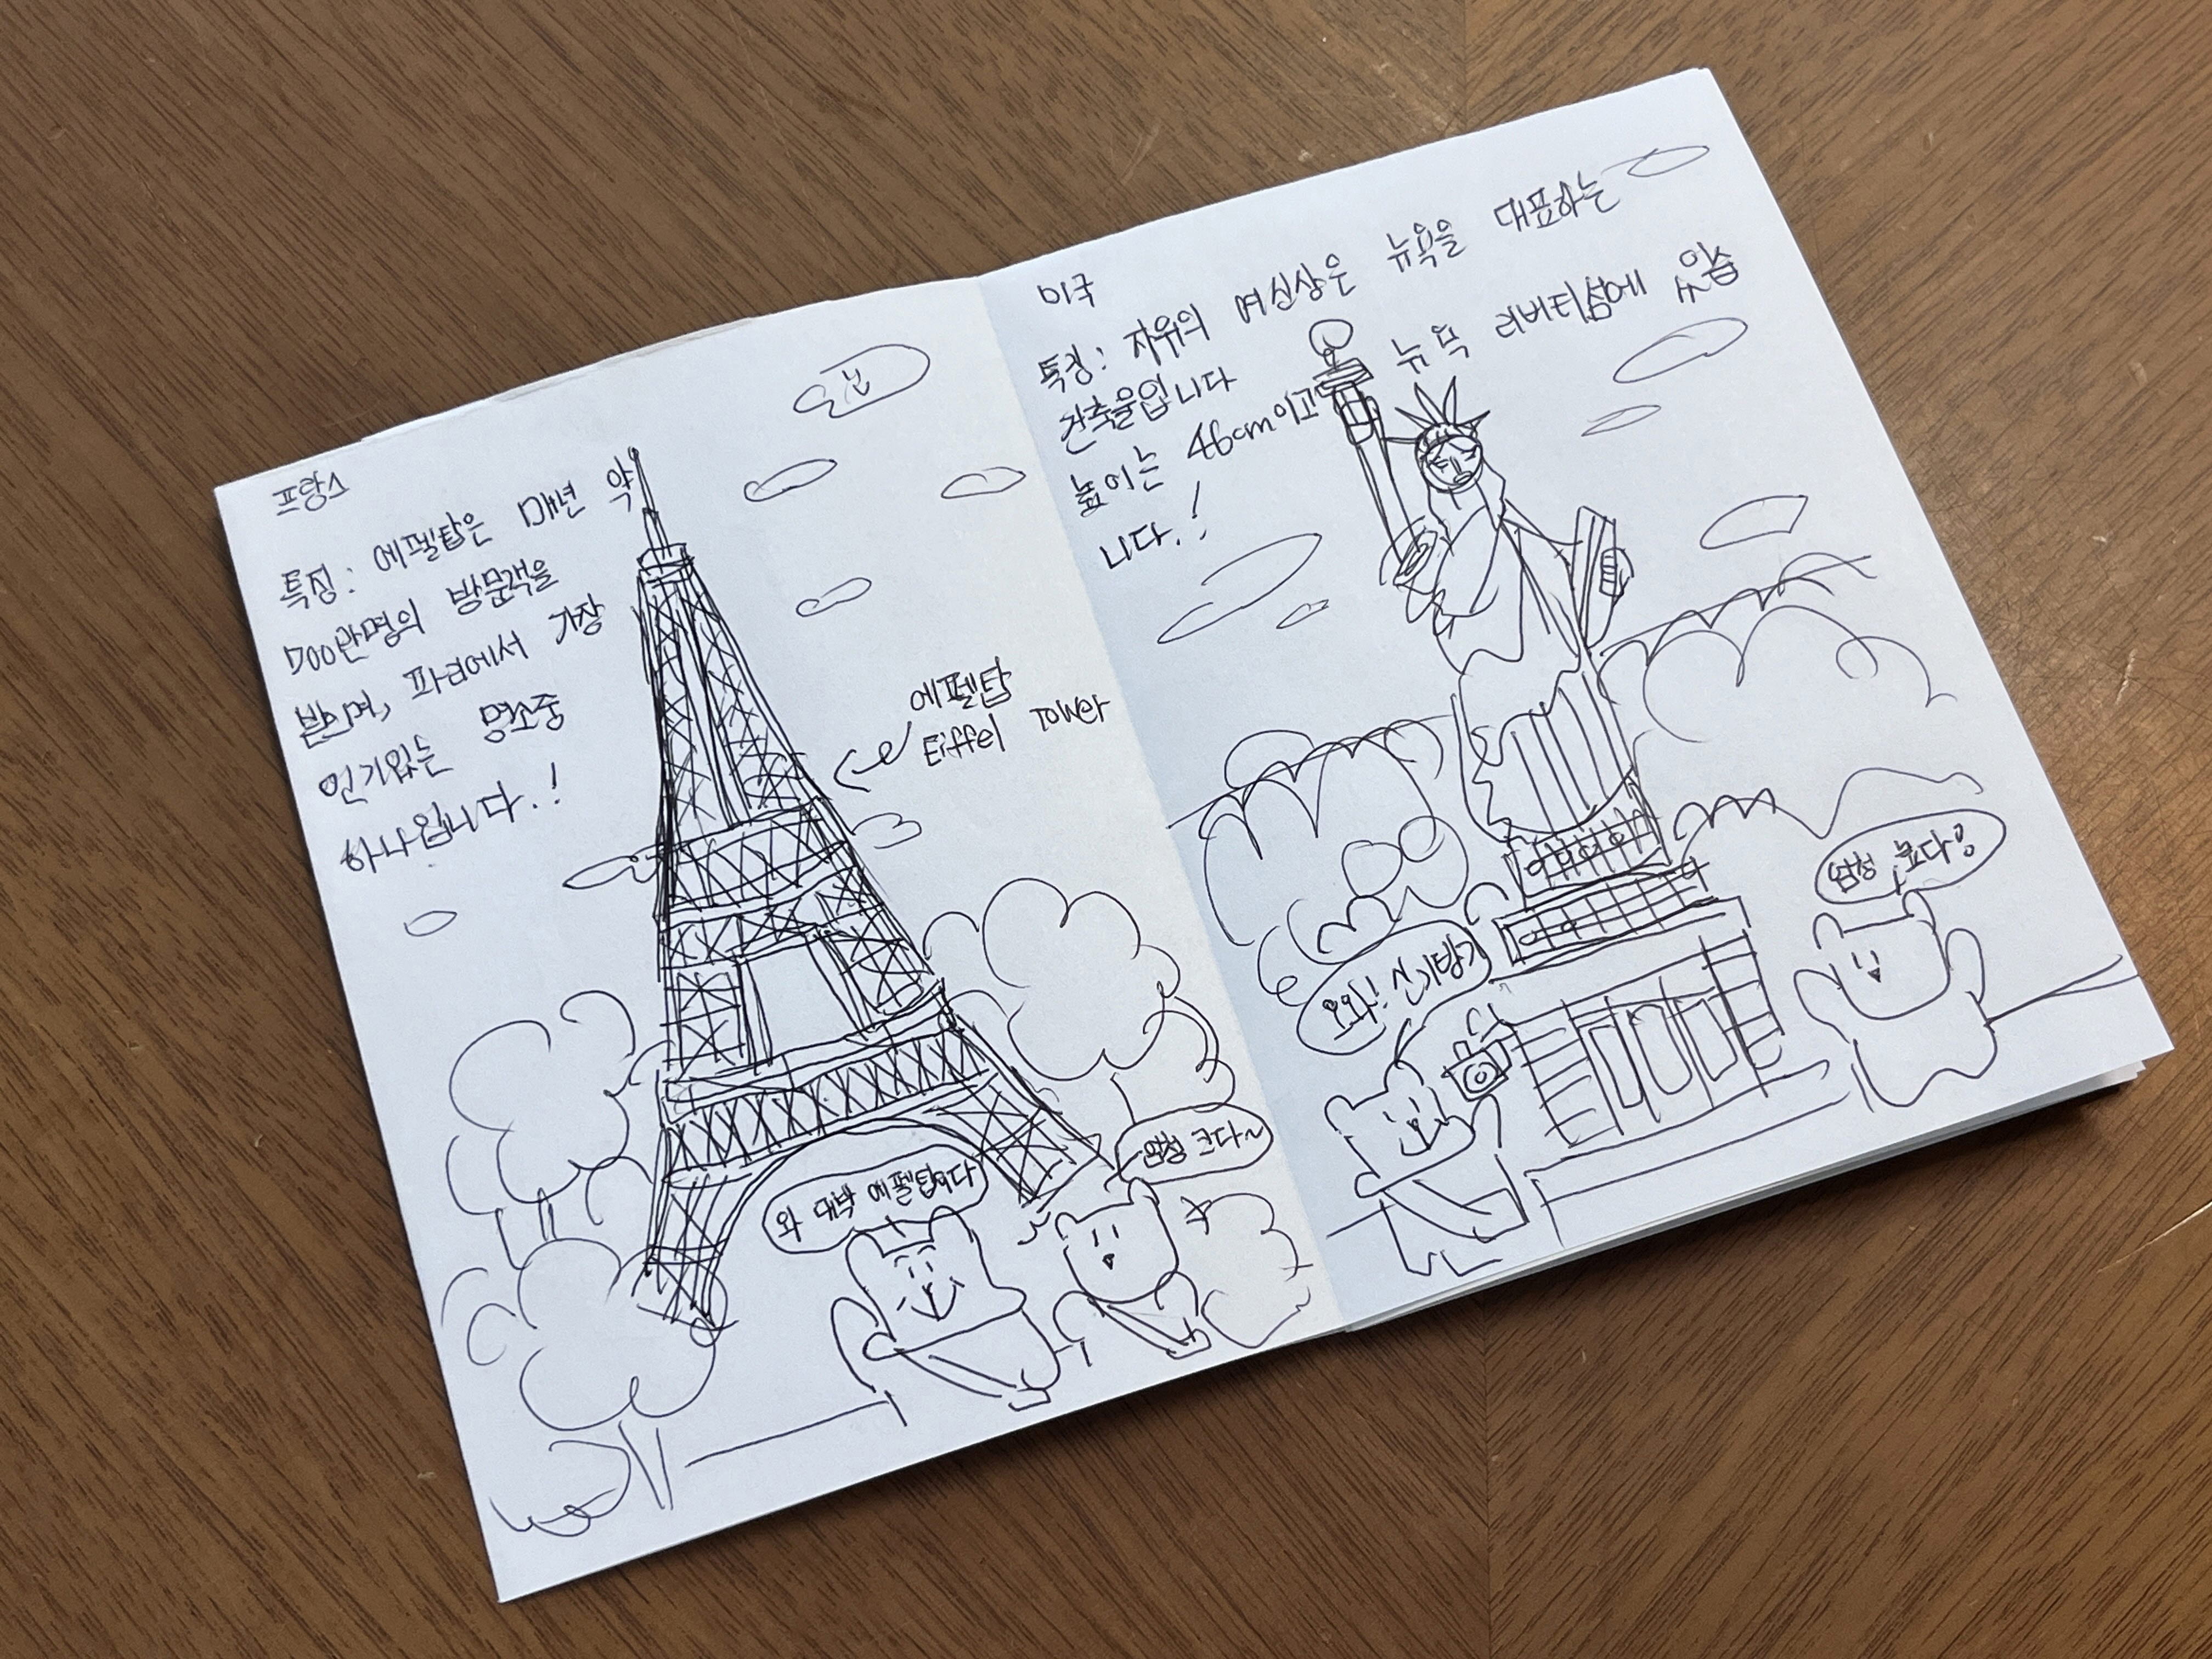 프랑스
특징: 에펠탑은 매년 약
700만명의 방문객을
받으며, 파리에서 가장
인기있는 명소중
하나입니다.!
에펠탑
Eiffel Tower
와 대박 에펠탑이다
엄청 크다~
미국
특징: 자유의 여신상은 뉴욕을 대표하는
건축물입니다
높이는 46cm이고 뉴욕 리버티섬에 있습
니다.!
오와! 신기방기
엄청 높다!